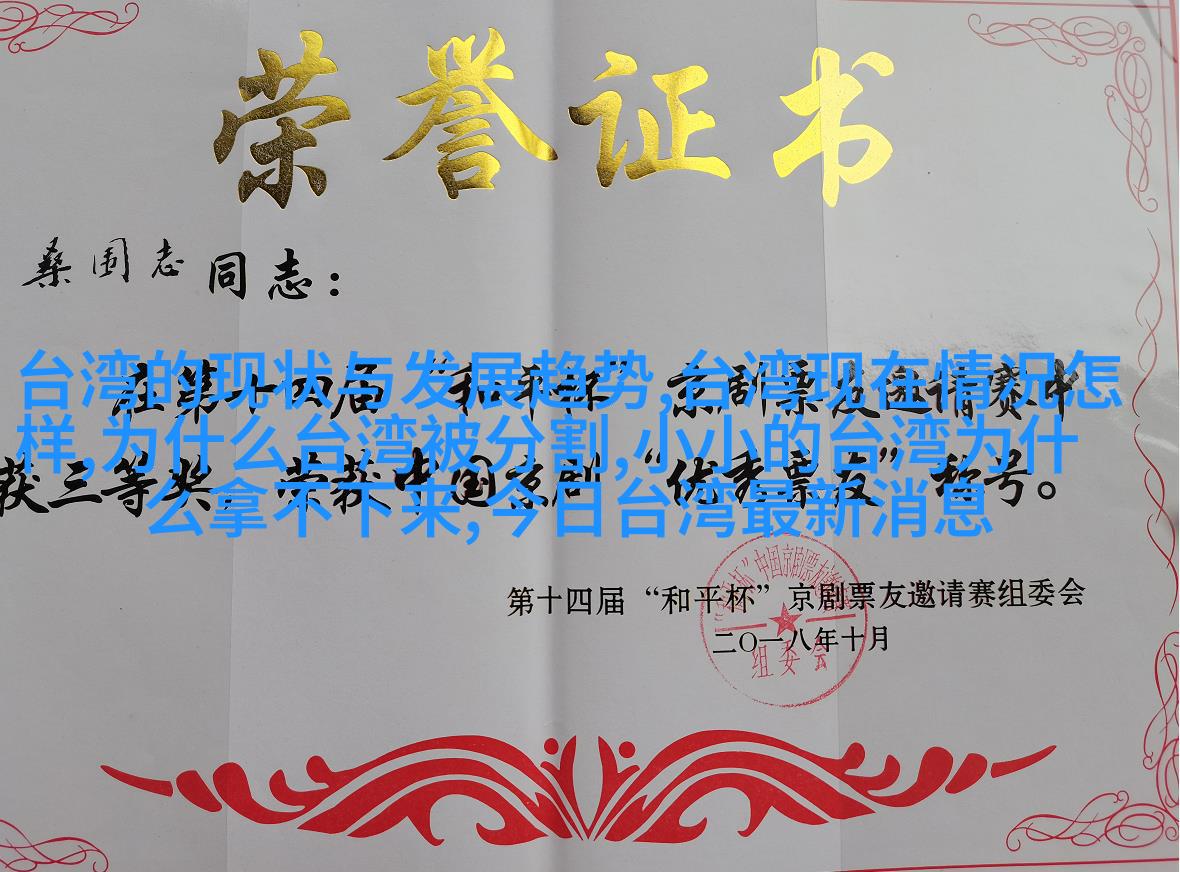 荣誉证书
桑国志同志：
在第十四届“和平杯”京剧票友邀请赛中
获三等奖，荣获中国京剧“优秀票友”称号。
台湾的现状与发展趋势,台湾现在情况怎
样,为什么台湾被分割,小小的台湾为什
么拿不下来,今日台湾最新消息
第十四届“和平杯”京剧票友邀请赛组委会
二〇一八年十月
组委会